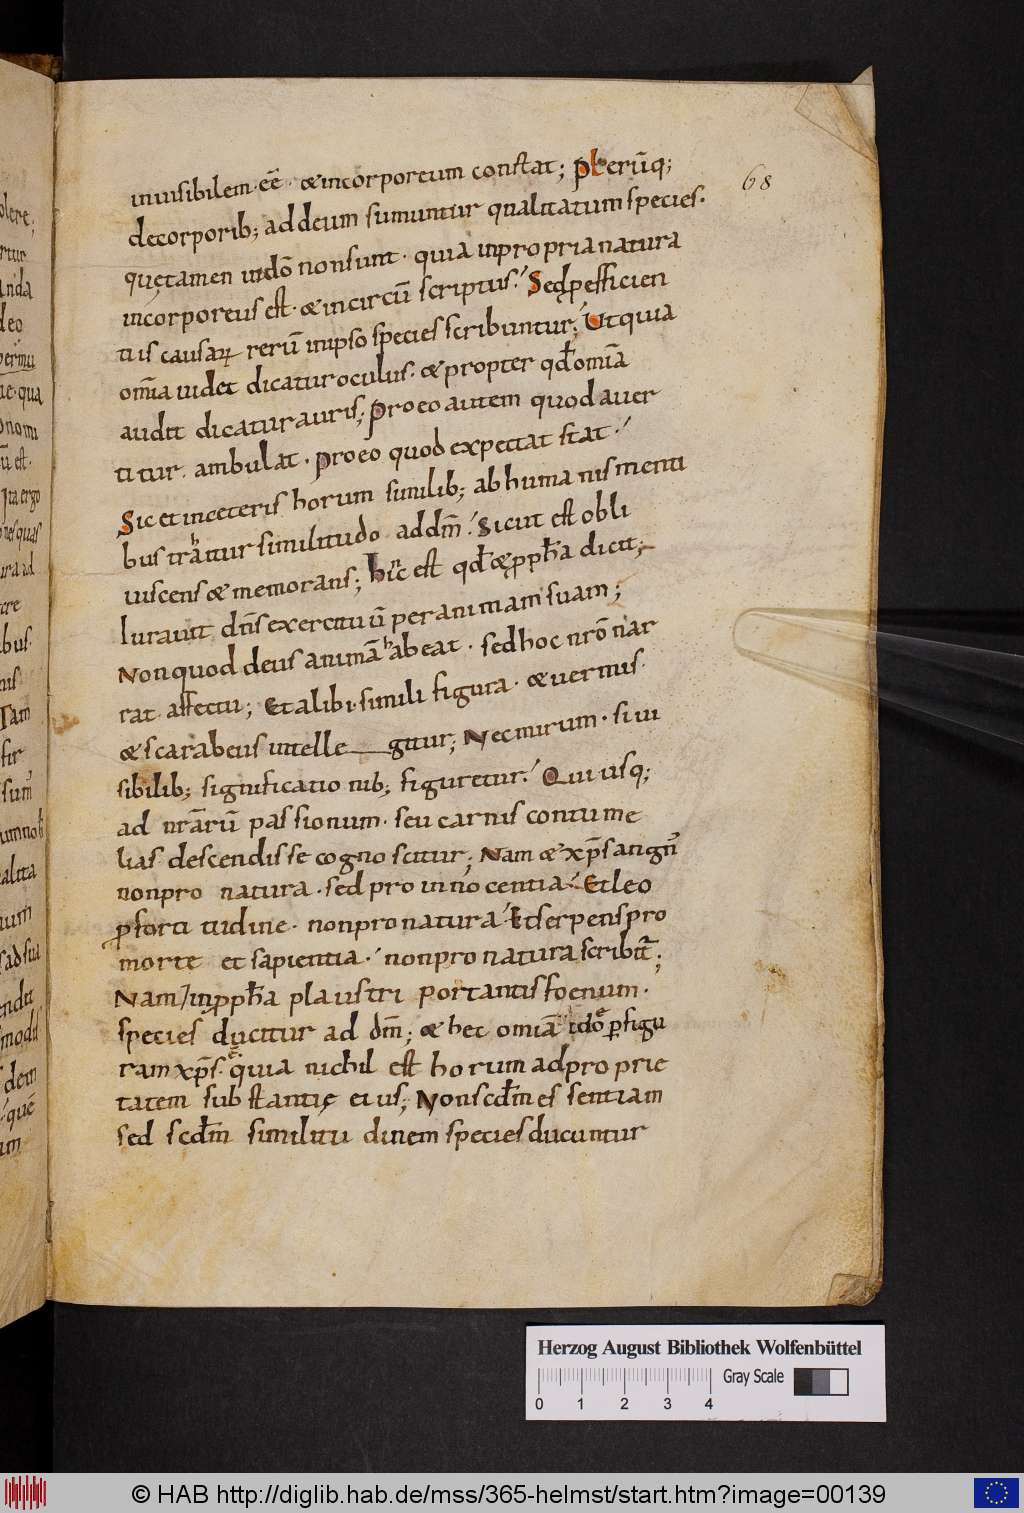 inuisibilem · eē · & incorporeum constat; Pleruq̄;
decorporib; ad deum sumuntur qualitatum species.
quę tamen in dō non sunt · quia in propria natura
incorporeus est · & incircū scriptus; Sed p efficien
tiis causaꝝ rerū in ipso species scribuntur; Ut quia
omīa uidet dicatur oculus · & propter qđ omīa
audit dicatur auris; Pro eo autem quod auer
titur · ambulat · pro eo quod expectat stat ·
Sic et in ceteris horum similib; ab humanis menti
bus trahitur similitudo ad dm̄; Sicut est obli
uiscens & memorans; hinc est qđ & ꝓpha dicit;
Iurauit dn̄s exercituū per animam suam;
Non quod deus animā habeat · sed hoc nr̄o nar
rat affectu; Et alibi · simili figura · & uermis ·
& scarabeus intelle gitur; Nec mirum · si ui
sibilib; significationib; figuretur; Qui usq;
ad nr̄arū passionum · seu carnis contume
lias descendisse cognoscitur; Nam & xp̄s angn'
non pro natura · sed pro innocentia; Et leo
p fortitudine · non pro natura; Et serpens pro
morte et sapientia · non pro natura scribit̄;
Nam / in ꝓpha plaustri portantis foenum ·
species ducitur ad dm̄; & hec omīa idō p figu
ram xp̄s · quia nichil est horum ad proprie
tatem substantię eius; Non scdm̄ essentiam
sed scdm̄ similitudinem species ducuntur
68
Herzog August Bibliothek Wolfenbüttel
Gray Scale
0 1 2 3 4
© HAB http://diglib.hab.de/mss/365-helmst/start.htm?image=00139